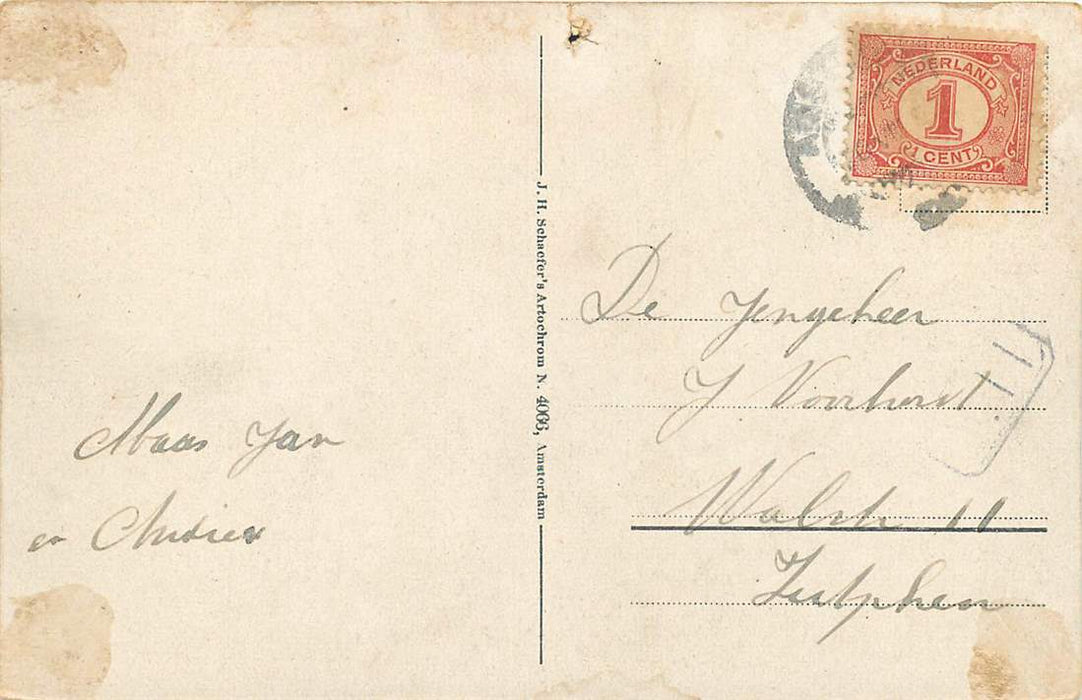 NEDERLAND
1
1 CENT
J. H. Schaefer's Artochrom N. 4066, Amsterdam
De Jongeheer
J Voorhorst
Walstr 11
Zutphen
Maas Jan
en Andries